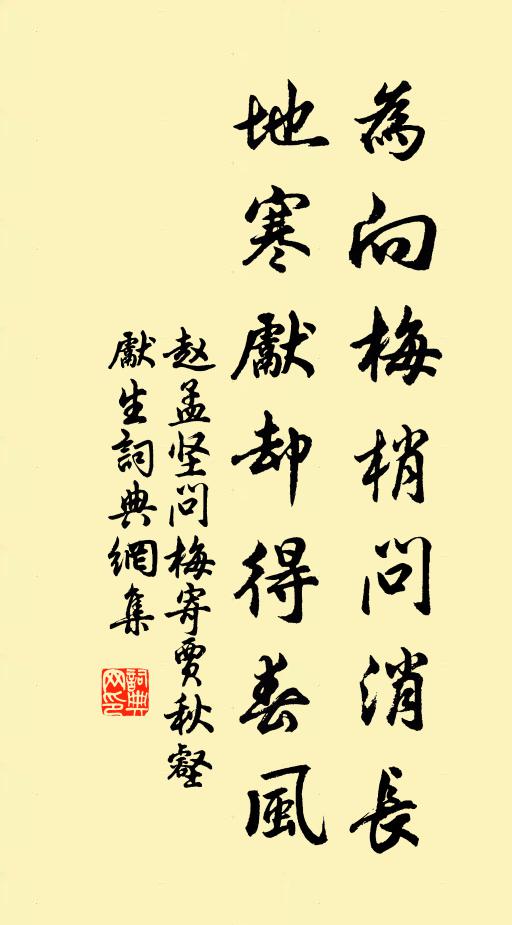 為向梅梢問消長
地寒獻却得春風
赵孟坚問梅寄賈秋壑
獻生詞典網集
詞典网印